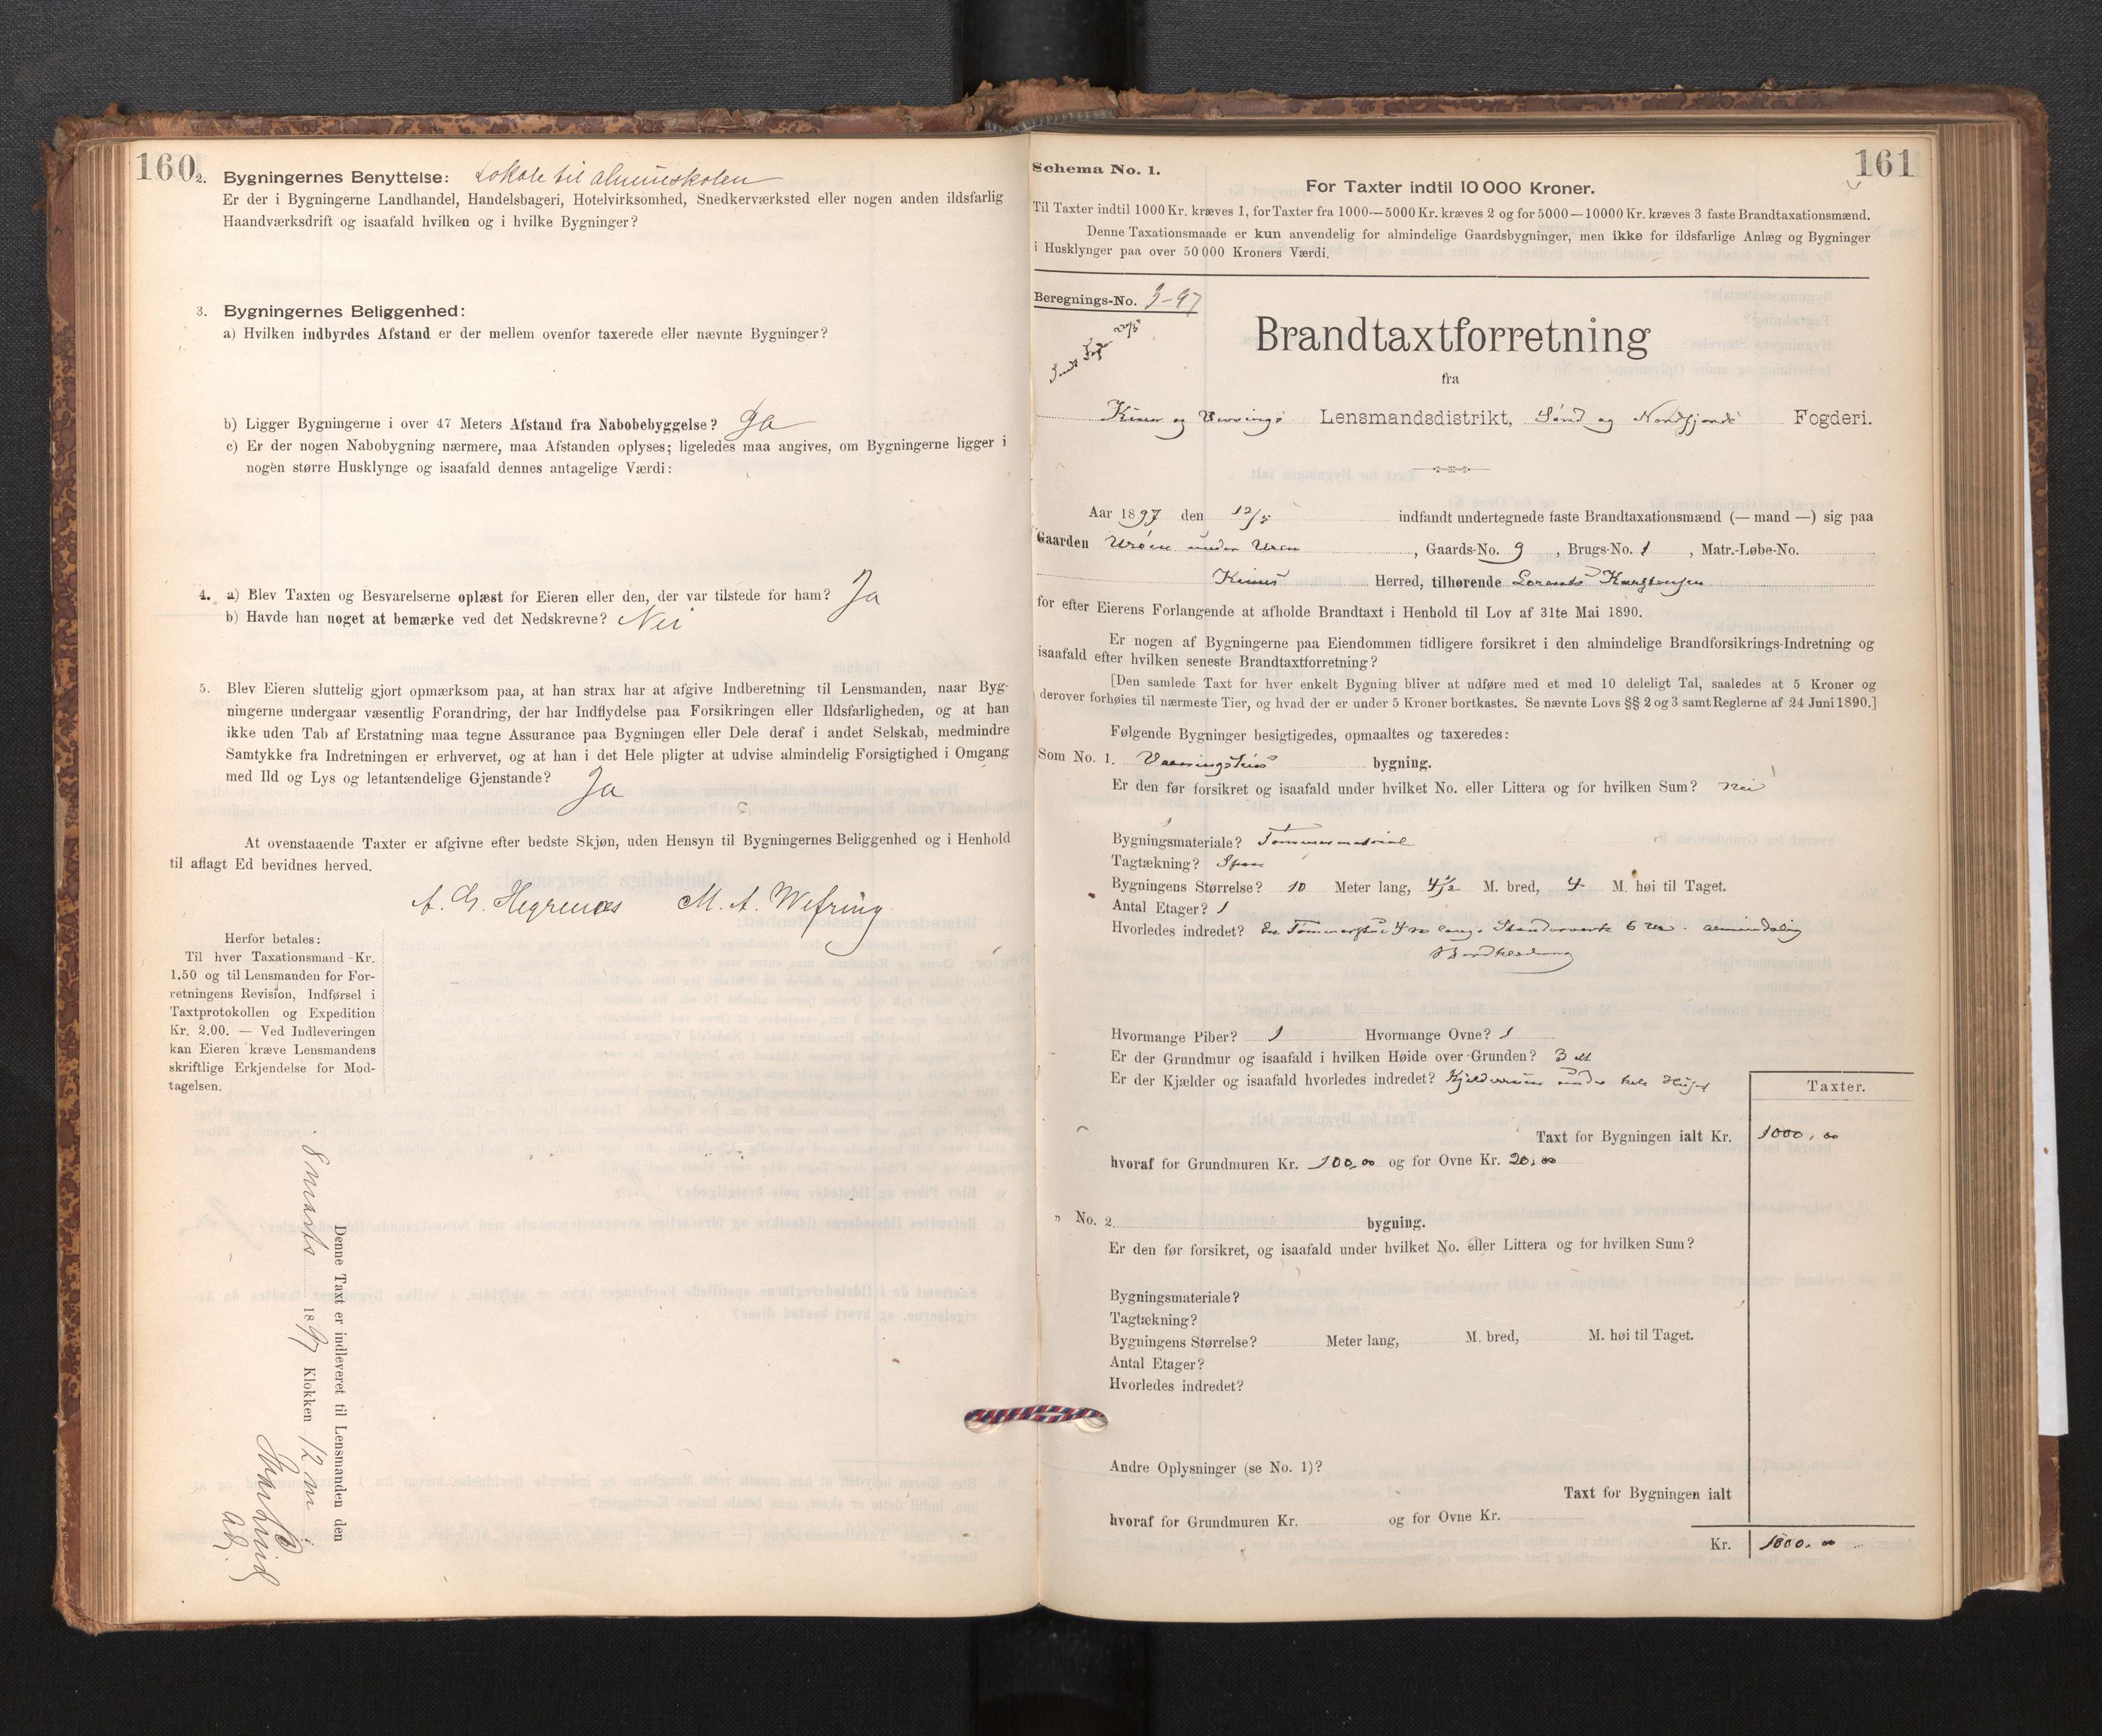 160
2. Bygningernes Benyttelse: Lokale til almueskolen
Er der i Bygningerne Landhandel, Handelsbageri, Hotelvirksomhed, Snedkerværksted eller nogen anden ildsfarlig
Haandværksdrift og isaafald hvilken og i hvilke Bygninger?
3. Bygningernes Beliggenhed:
a) Hvilken indbyrdes Afstand er der mellem ovenfor taxerede eller nævnte Bygninger?
b) Ligger Bygningerne i over 47 Meters Afstand fra Nabobebyggelse? Ja
c) Er der nogen Nabobygning nærmere, maa Afstanden oplyses; ligeledes maa angives, om Bygningerne ligger i
nogen større Husklynge og isaafald dennes antagelige Værdi:
4. a) Blev Taxten og Besvarelserne oplæst for Eieren eller den, der var tilstede for ham? Ja
b) Havde han noget at bemærke ved det Nedskrevne? Nei
5. Blev Eieren sluttelig gjort opmærksom paa, at han strax har at afgive Indberetning til Lensmanden, naar Byg-
ningerne undergaar væsentlig Forandring, der har Indflydelse paa Forsikringen eller Ildsfarligheden, og at han
ikke uden Tab af Erstatning maa tegne Assurance paa Bygningen eller Dele deraf i andet Selskab, medmindre
Samtykke fra Indretningen er erhvervet, og at han i det Hele pligter at udvise almindelig Forsigtighed i Omgang
med Ild og Lys og letantændelige Gjenstande? Ja
At ovenstaaende Taxter er afgivne efter bedste Skjøn, uden Hensyn til Bygningernes Beliggenhed og i Henhold
til aflagt Ed bevidnes herved.
A. G. Hegrenæs M. A. Wefring
Herfor betales:
Til hver Taxationsmand Kr.
1.50 og til Lensmanden for For-
retningens Revision, Indførsel i
Taxtprotokollen og Expedition
Kr. 2.00. — Ved Indleveringen
kan Eieren kræve Lensmandens
skriftlige Erkjendelse for Mod-
tagelsen.
Denne Taxt er indleveret til Lensmanden den
8 marts 1897 Klokken 12 m
161
Schema No. 1.
For Taxter indtil 10 000 Kroner.
Til Taxter indtil 1000 Kr. kræves 1, for Taxter fra 1000—5000 Kr. kræves 2 og for 5000—10000 Kr. kræves 3 faste Brandtaxationsmænd.
Denne Taxationsmaade er kun anvendelig for almindelige Gaardsbygninger, men ikke for ildsfarlige Anlæg og Bygninger
i Husklynger paa over 50 000 Kroners Værdi.
Beregnings-No. 3-97
Brandtaxtforretning
fra
Kinn og Lensmandsdistrikt, Sønd og Nordfjords Fogderi.
Aar 1897 den 12/5 indfandt undertegnede faste Brandtaxationsmænd (— mand —) sig paa
Gaarden under Uren, Gaards-No. 9, Brugs-No. 1, Matr.-Løbe-No.
Kinns Herred, tilhørende Lorents Karstensen
for efter Eierens Forlangende at afholde Brandtaxt i Henhold til Lov af 31te Mai 1890.
Er nogen af Bygningerne paa Eiendommen tidligere forsikret i den almindelige Brandforsikrings-Indretning og
isaafald efter hvilken seneste Brandtaxtforretning?
[Den samlede Taxt for hver enkelt Bygning bliver at udføre med et med 10 deleligt Tal, saaledes at 5 Kroner og
derover forhøies til nærmeste Tier, og hvad der er under 5 Kroner bortkastes. Se nævnte Lovs §§ 2 og 3 samt Reglerne af 24 Juni 1890.]
Følgende Bygninger besigtigedes, opmaaltes og taxeredes:
Som No. 1. Vaaningshus bygning.
Er den før forsikret og isaafald under hvilket No. eller Littera og for hvilken Sum? Nei
Bygningsmateriale? Tømmermaterial
Tagtækning? Spon
Bygningens Størrelse? 10 Meter lang, 4½ M. bred, 4 M. høi til Taget.
Antal Etager? 1
Hvorledes indredet? En Tømmerstue 4 m lang. Standerværk 6 m. almindelig
Bordklædning
Hvormange Piber? 1 Hvormange Ovne? 1
Er der Grundmur og isaafald i hvilken Høide over Grunden? 3 al
Er der Kjælder og isaafald hvorledes indredet? under hele Huset
Taxter.
Taxt for Bygningen ialt Kr. 1000,00
hvoraf for Grundmuren Kr. 100,00 og for Ovne Kr. 20,00
" No. 2. bygning.
Er den før forsikret, og isaafald under hvilket No. eller Littera og for hvilken Sum?
Bygningsmateriale?
Tagtækning?
Bygningens Størrelse? Meter lang, M. bred, M. høi til Taget.
Antal Etager?
Hvorledes indredet?
Andre Oplysninger (se No. 1)?
Taxt for Bygningen ialt
hvoraf for Grundmuren Kr. og for Ovne Kr.
Kr. 1000.00